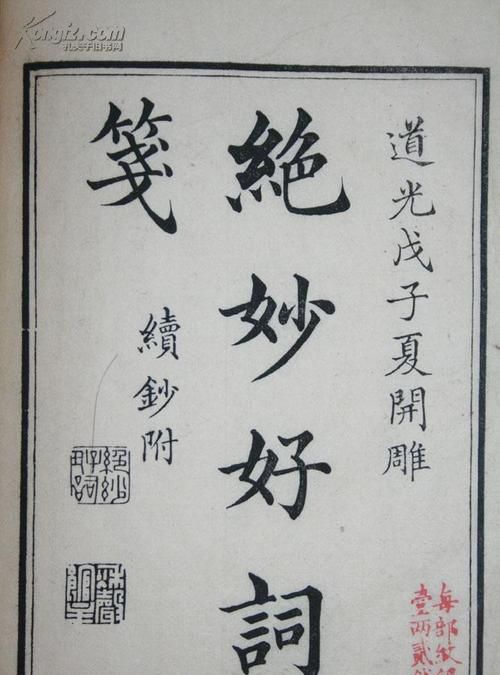 道光戊子夏開雕
絶妙好詞
箋
續鈔附
絕妙好詞
每部紋銀
壹兩貳錢
Kongfz.com
孔夫子旧书网